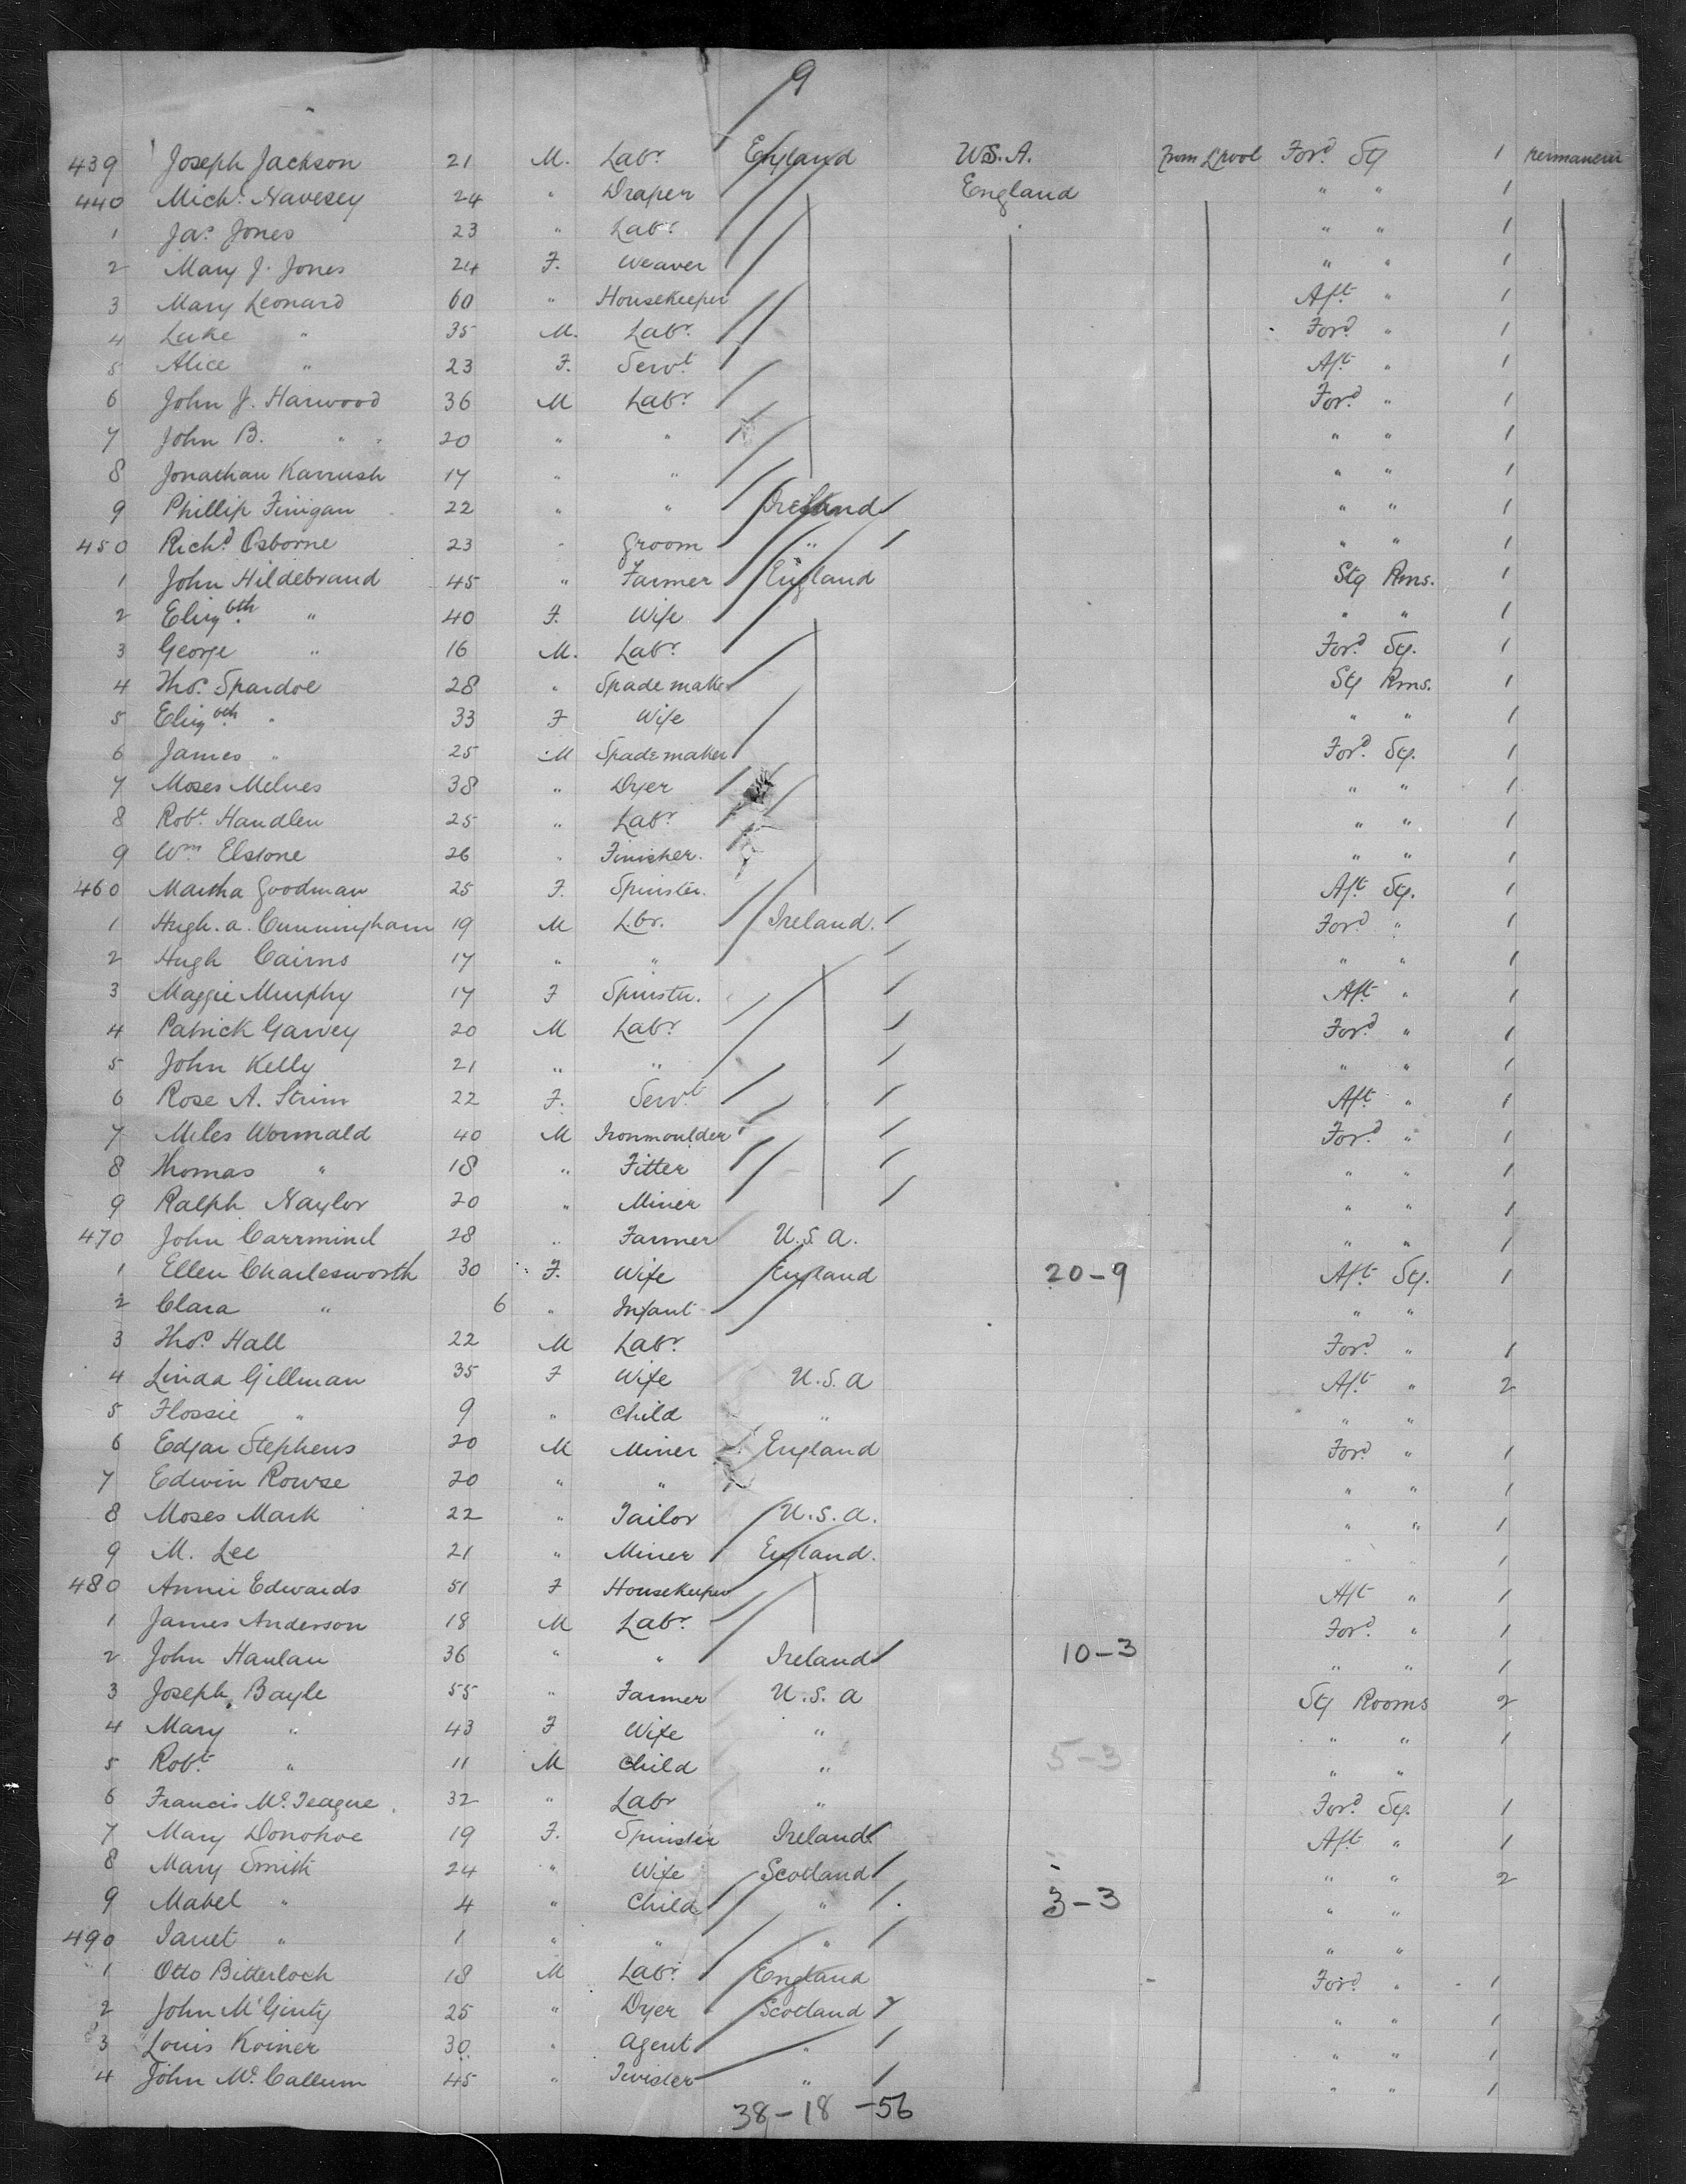 9
439 Joseph Jackson 21 M. Labr. England U.S.A. from Lpool Ford. Stg 1 permanent
440 Michl. Navesey 24 " Draper England " " 1
1 Jas. Jones 23 " Labr. " " 1
2 Mary J. Jones 24 F. Weaver " " 1
3 Mary Leonard 60 " Housekeeper Aft. " 1
4 Luke " 35 M. Labr. Ford. " 1
5 Alice " 23 F. Servt. Aft. " 1
6 John J. Harwood 36 M Labr. Ford. " 1
7 John B. " 20 " " " " 1
8 Jonathan 17 " " " " 1
9 Phillip Finigan 22 " " Ireland " " 1
450 Richd. Osborne 23 " Groom " " " 1
1 John Hildebrand 45 " Farmer England Stg Rms. 1
2 Elizbth. " 40 F. Wife " " 1
3 George " 16 M. Labr. Ford. Stg. 1
4 Thos. Spardoe 28 " Spade maker Stg Rms. 1
5 Elizbth " 33 F Wife " " 1
6 James " 25 M Spade maker Ford. Stg. 1
7 Moses Melnes 38 " Dyer " " 1
8 Robt. Handlen 25 " Labr " " 1
9 Wm. Elstone 26 " Finisher. " " 1
460 Martha Goodman 25 F. Spinster. Aft. Stg. 1
1 Hugh. A. Cunningham 19 M Lbr. Ireland. Ford " 1
2 Hugh Cairns 17 " " " " 1
3 Maggie Murphy 17 F Spinster. Aft. " 1
4 Patrick Garvey 20 M Labr. Ford. " 1
5 John Kelly 21 " " " " 1
6 Rose A. 22 F. Servt. Aft. " 1
7 Miles Wormald 40 M Ironmoulder Ford. " 1
8 Thomas " 18 " Fitter " " 1
9 Ralph Naylor 20 " Miner " " 1
470 John 28 " Farmer U.S.A. " " 1
1 Ellen Charlesworth 30 F. Wife England 20-9 Aft. Stg. 1
2 Clara " 6 " Infant " "
3 Thos. Hall 22 M Labr. Ford. " 1
4 Linda Gillman 35 F Wife U.S.A Aft. " 2
5 Flossie " 9 " Child " " "
6 Edgar Stephens 20 M Miner England Ford " 1
7 Edwin Rowse 20 " " " " 1
8 Moses Mark 22 " Tailor U.S.A. " " 1
9 M. Lee 21 " Miner England. " " 1
480 Annie Edwards 51 F Housekeeper Aft " 1
1 James Anderson 18 M Labr. Ford. " 1
2 John Hanlan 36 " " Ireland 10-3 " " 1
3 Joseph Bayle 55 " Farmer U.S.A Stg Rooms 2
4 Mary " 43 F Wife " " " 1
5 Robt. " 11 M Child " 5-3 " "
6 Francis Mc. Teague 32 " Labr " Ford. Stg. 1
7 Mary Donohoe 19 F. Spinster Ireland Aft. " 1
8 Mary Smith 24 " Wife Scotland " " 2
9 Mabel " 4 " Child " 3-3 " "
490 Janet " 1 " " " " "
1 Otto Bitterloch 18 M Labr. England Ford. " 1
2 John McGinty 25 " Dyer Scotland " " 1
3 Louis Koiner 30 " Agent " " " 1
4 John Mc. Callum 45 " Twister " " " 1
38-18-56